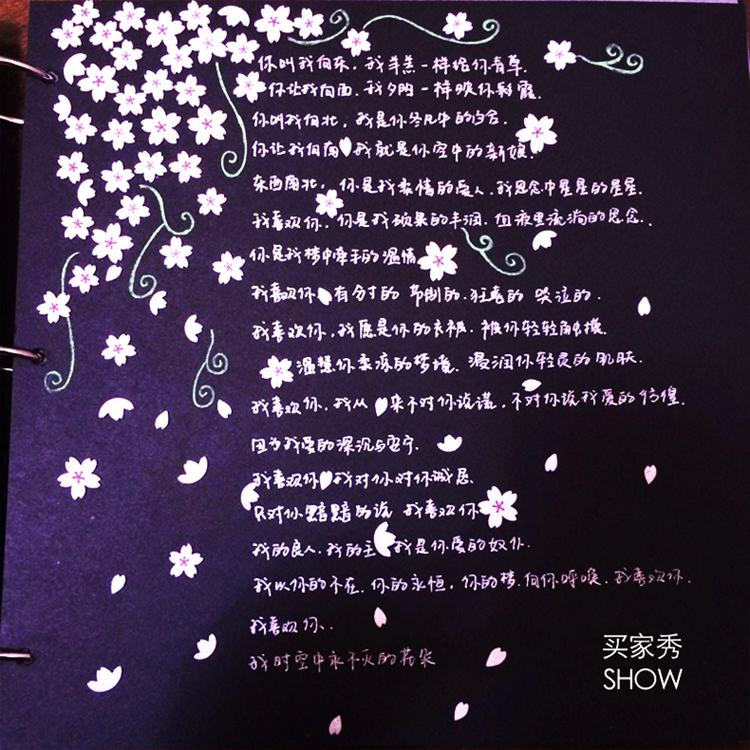 你叫我向东，我羊羔一样挖你青草.
你让我向西，我夕阳一样映你彩霞.
你叫我向北，我是你冬风中的白雪.
你让我向南 我就是你空中的新娘.
东西南北，你是我柔情的爱人.我思念中星星的星星.
我喜欢你，你是我硕果的丰润.血液里流淌的思念.
你是我梦中牵手的温情
我喜欢你 有分寸的 节制的.狂喜的 哭泣的.
我喜欢你，我愿是你的衣被.被你轻轻触摸.
温慰你柔冻的梦境.浸润你轻灵的肌肤.
我喜欢你，我从 来不对你说谎，不对你说我爱的彷徨.
因为我爱的深沉与安宁.
我喜欢你 我对你对你诚恳.
只对你默默的说 我喜欢你
我的良人，我的主 我是你爱的奴仆.
我以你的不在.你的永恒，你的梦.向你呼唤.我喜欢你.
我喜欢你、
我时空中永不灭的花朵
买家秀
SHOW